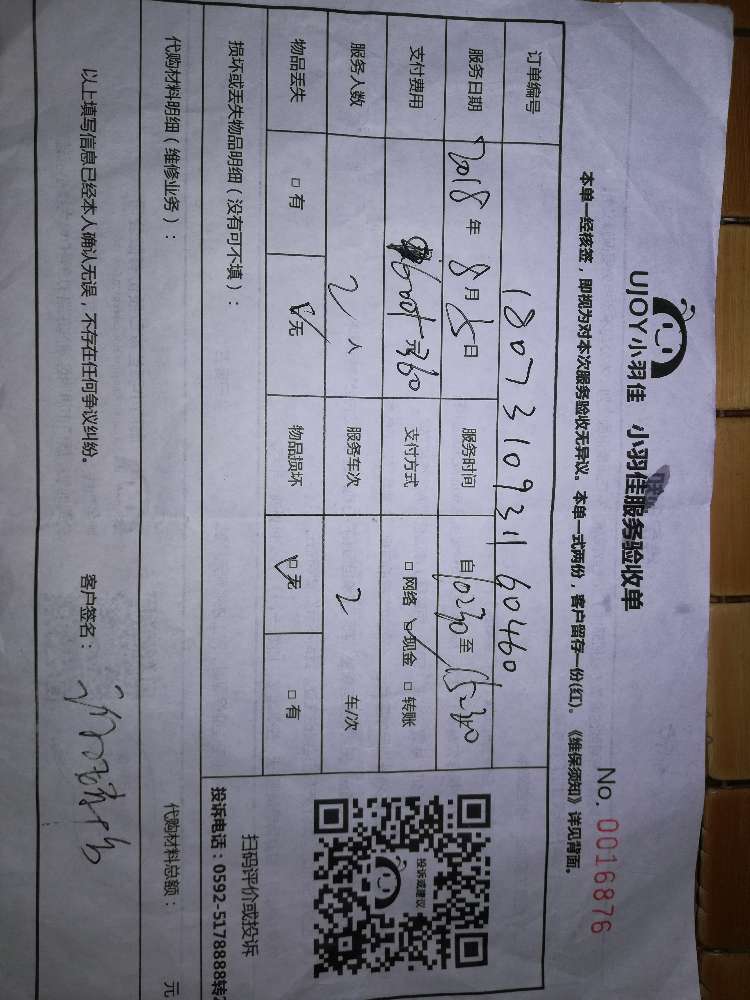 UJOY小羽佳 小羽佳服务验收单
No. 0016876
本单一经核签，即视为对本次服务验收无异议。本单一式两份，客户留存一份(红)。《维保须知》详见背面。
订单编号 1807310931160460
服务日期 2018年8月5日 服务时间 自10:30至15:30
支付费用 元360 支付方式 □网络 ☑现金 □转账
服务人数 2人 服务车次 2 车/次
物品丢失 □有 ☑无 物品损坏 ☑无 □有
损坏或丢失物品明细（没有可不填）：
投诉或建议
扫码评价或投诉
投诉电话：0592-5178888转2
代购材料明细（维修业务）： 代购材料总额： 元
以上填写信息已经本人确认无误，不存在任何争议纠纷。 客户签名：